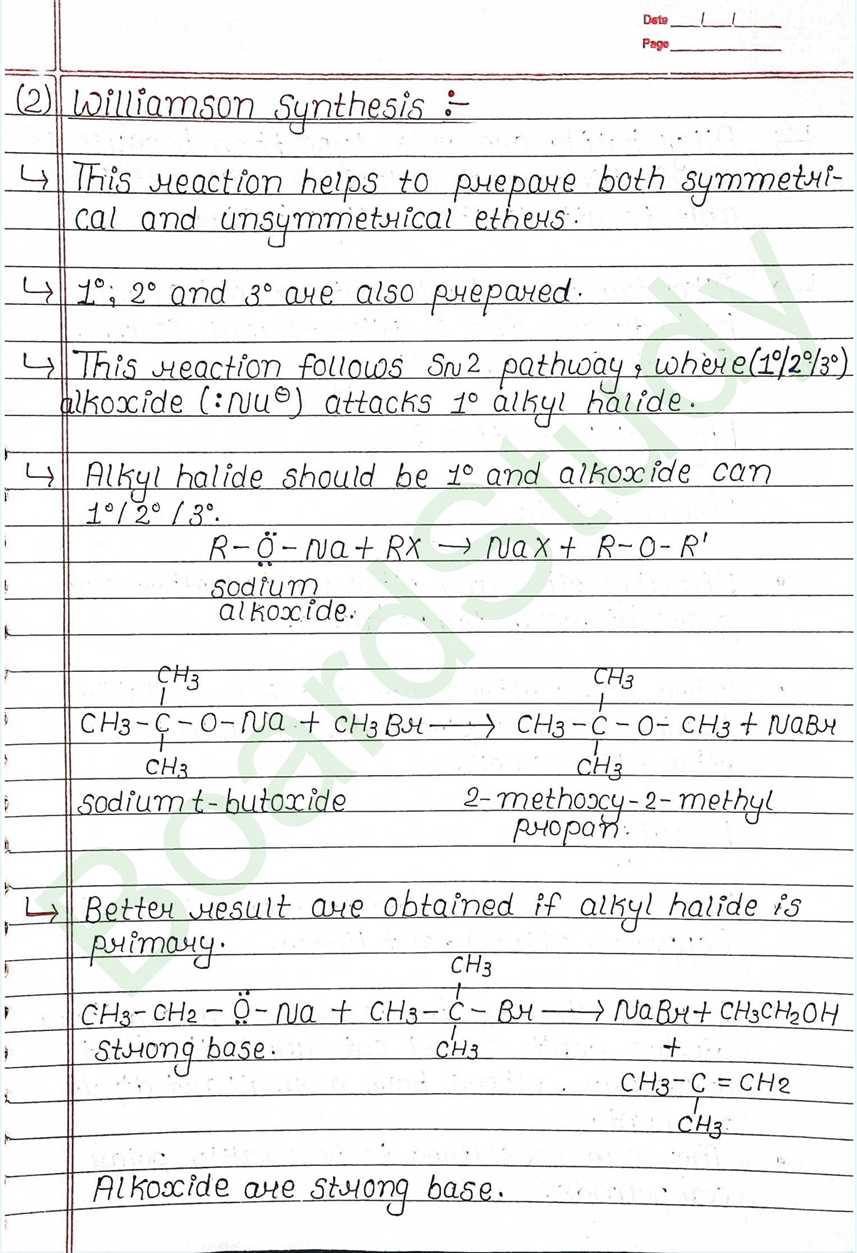 Date / /
Page
(2) Williamson Synthesis :-
↳ This reaction helps to prepare both symmetri-
cal and unsymmetrical ethers.
↳ 1°, 2° and 3° are also prepared.
↳ This reaction follows SN2 pathway, where (1°/2°/3°)
alkoxide (:Nu⊖) attacks 1° alkyl halide.
↳ Alkyl halide should be 1° and alkoxide can
1°/2°/3°.
R-Ö-Na + RX → NaX + R-O-R'
sodium
alkoxide.
CH3 CH3
CH3-C-O-Na + CH3Br → CH3-C-O-CH3 + NaBr
CH3 CH3
sodium t-butoxide 2-methoxy-2-methyl
propan.
↳ Better result are obtained if alkyl halide is
primary.
CH3
CH3-CH2-Ö-Na + CH3-C-Br → NaBr + CH3CH2OH
strong base. CH3 +
CH3-C=CH2
CH3
Alkoxide are strong base.
BoardStudy